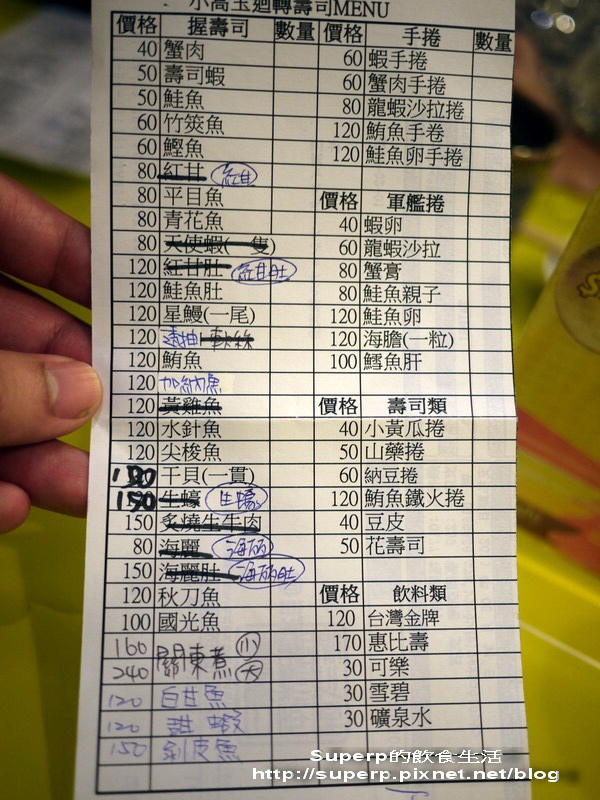 小高玉迴轉壽司MENU
價格 握壽司 數量 價格 手捲 數量
40 蟹肉 60 蝦手捲
50 壽司蝦 60 蟹肉手捲
50 鮭魚 80 龍蝦沙拉捲
60 竹筴魚 120 鮪魚手卷
60 鰹魚 120 鮭魚卵手捲
80 紅甘 紅甘
80 平目魚 價格 軍艦捲
80 青花魚 40 蝦卵
80 天使蝦(一隻) 60 龍蝦沙拉
120 紅甘肚 紅甘肚 80 蟹膏
120 鮭魚肚 80 鮭魚親子
120 星鰻(一尾) 120 鮭魚卵
120 軟絲 120 海膽(一粒)
120 鮪魚 100 鱈魚肝
120 加納魚
120 黃雞魚 價格 壽司類
120 水針魚 40 小黃瓜捲
120 尖梭魚 50 山藥捲
150 干貝(一貫) 60 納豆捲
150 生蠔 生蠔 120 鮪魚鐵火捲
150 炙燒生牛肉 40 豆皮
80 海麗 海麗 50 花壽司
150 海麗肚 海麗肚
120 秋刀魚 價格 飲料類
100 國光魚 120 台灣金牌
160 關東煮 小 170 惠比壽
240 大 30 可樂
120 白甘魚 30 雪碧
120 甜蝦 30 礦泉水
150 剝皮魚
Superp的飲食生活
http://superp.pixnet.net/blog